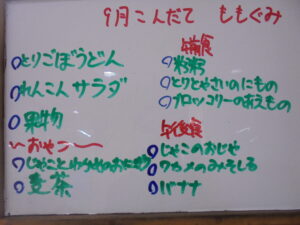 9月こんだて ももぐみ
とりごぼうどん
れんこんサラダ
果物
〜おやつ〜
じゃことわかめのおにぎり
麦茶
離乳食
粉粥
とりとやさいのにもの
ブロッコリーのあえもの
じゃこのおじや
ワカメのみそしる
バナナ